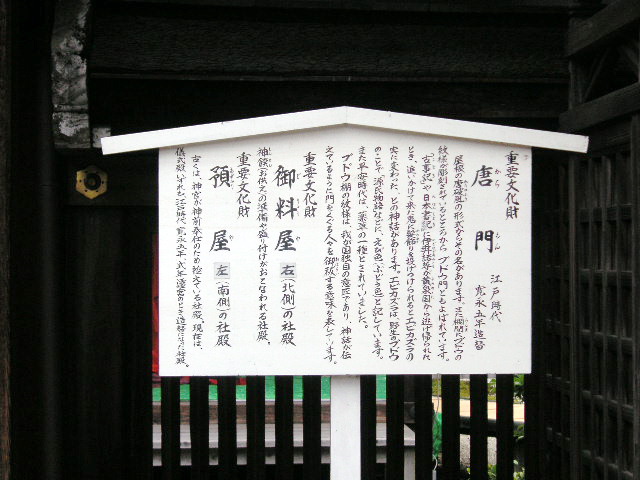 重要文化財
唐門
から もん
江戸時代
寛永五年造替
屋根の唐破風の形式からその名があります。また欄間にブドウの
紋様が彫刻されているところから ブドウ門ともよばれています。
「古事記」や「日本書記」に伊邪諾尊が黄泉国から逃げ帰られた
とき、追いかけて来た鬼に髪飾りを投げつけられるとエビカズラの
実に変わった、との神話があります。エビカズラは、野生のブドウ
のことで、源氏物語などに、えび色(ぶどう色)と記しています。
また平安時代は、薬草の一種とされていました。
ブドウ棚の紋様は 我が国独自の意匠であり、神話が伝
えているように門をくぐる人々を御祓する意味を表しています。
重要文化財
御料屋 右(北側)の社殿
神饌(お供え)の準備や盛り付けがおこなわれる社殿。
重要文化財
預屋 左(南側)の社殿
古くは、神官が神前奉仕のため控えている社殿。現在は、
儀式殿。いずれも江戸時代、寛永五年、式年造替のとき造替になった社殿。